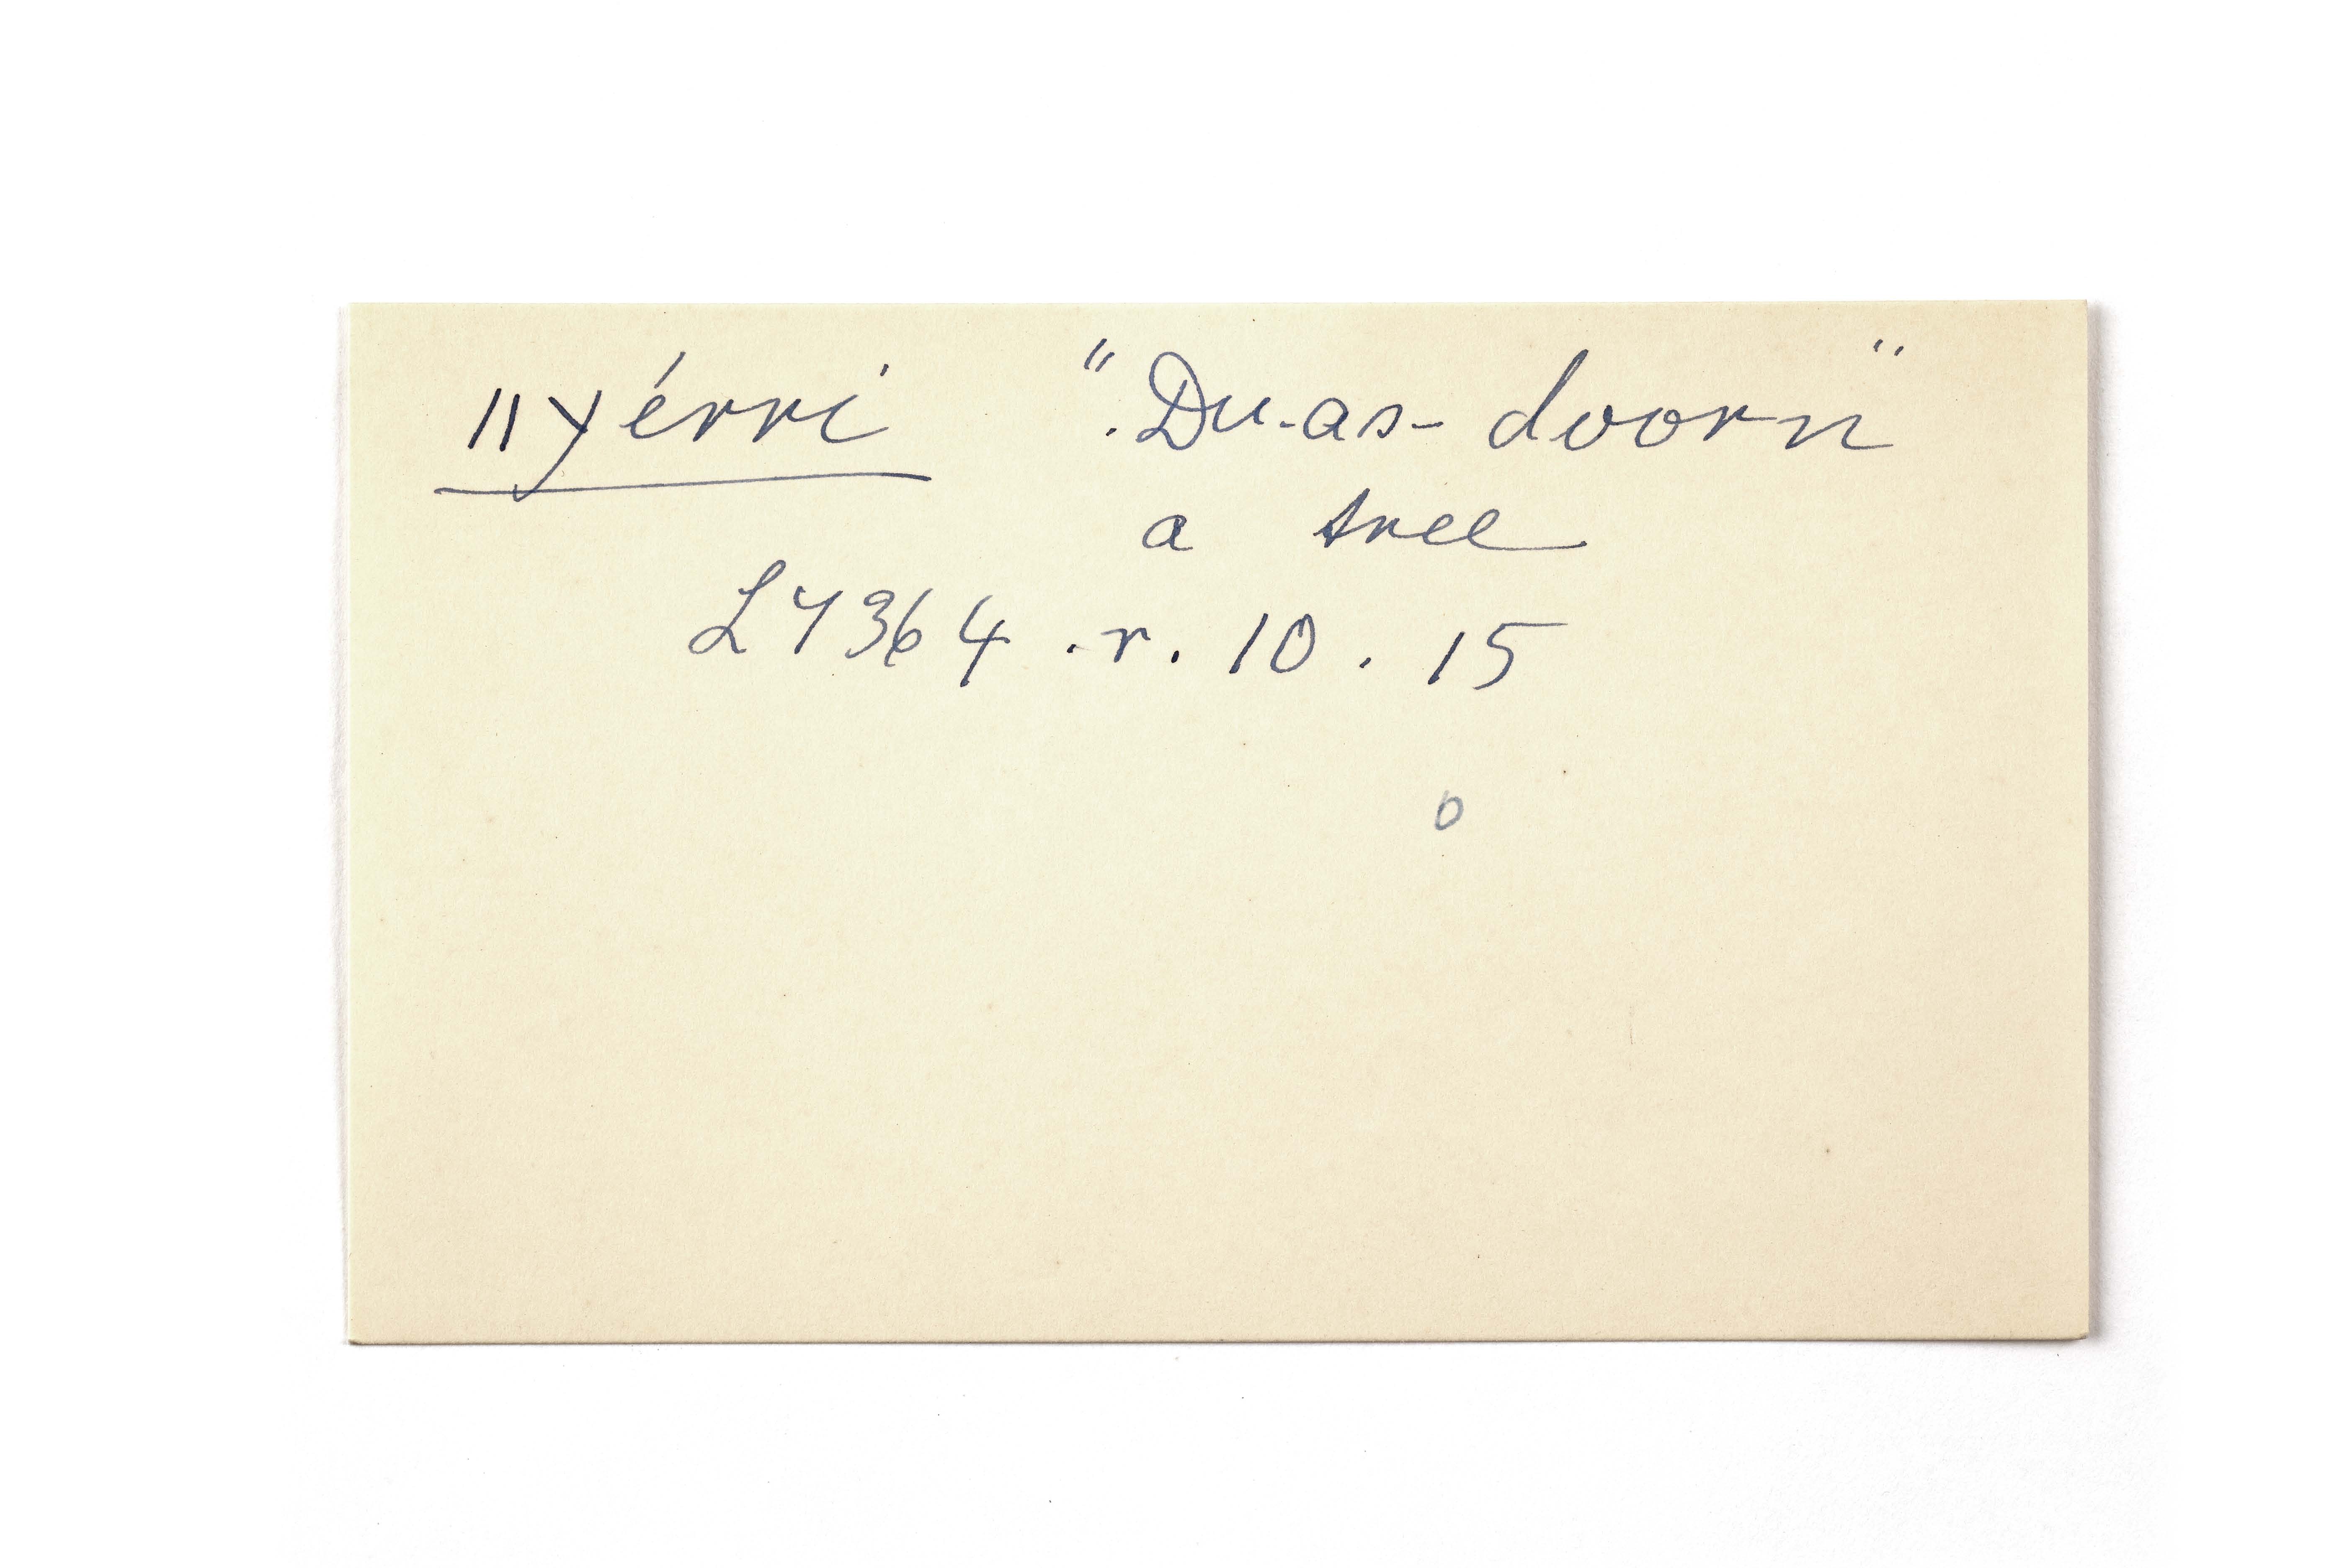 ॥yérri ". Du-as-doorn"
a tree
L7364 .r. 10 . 15
o